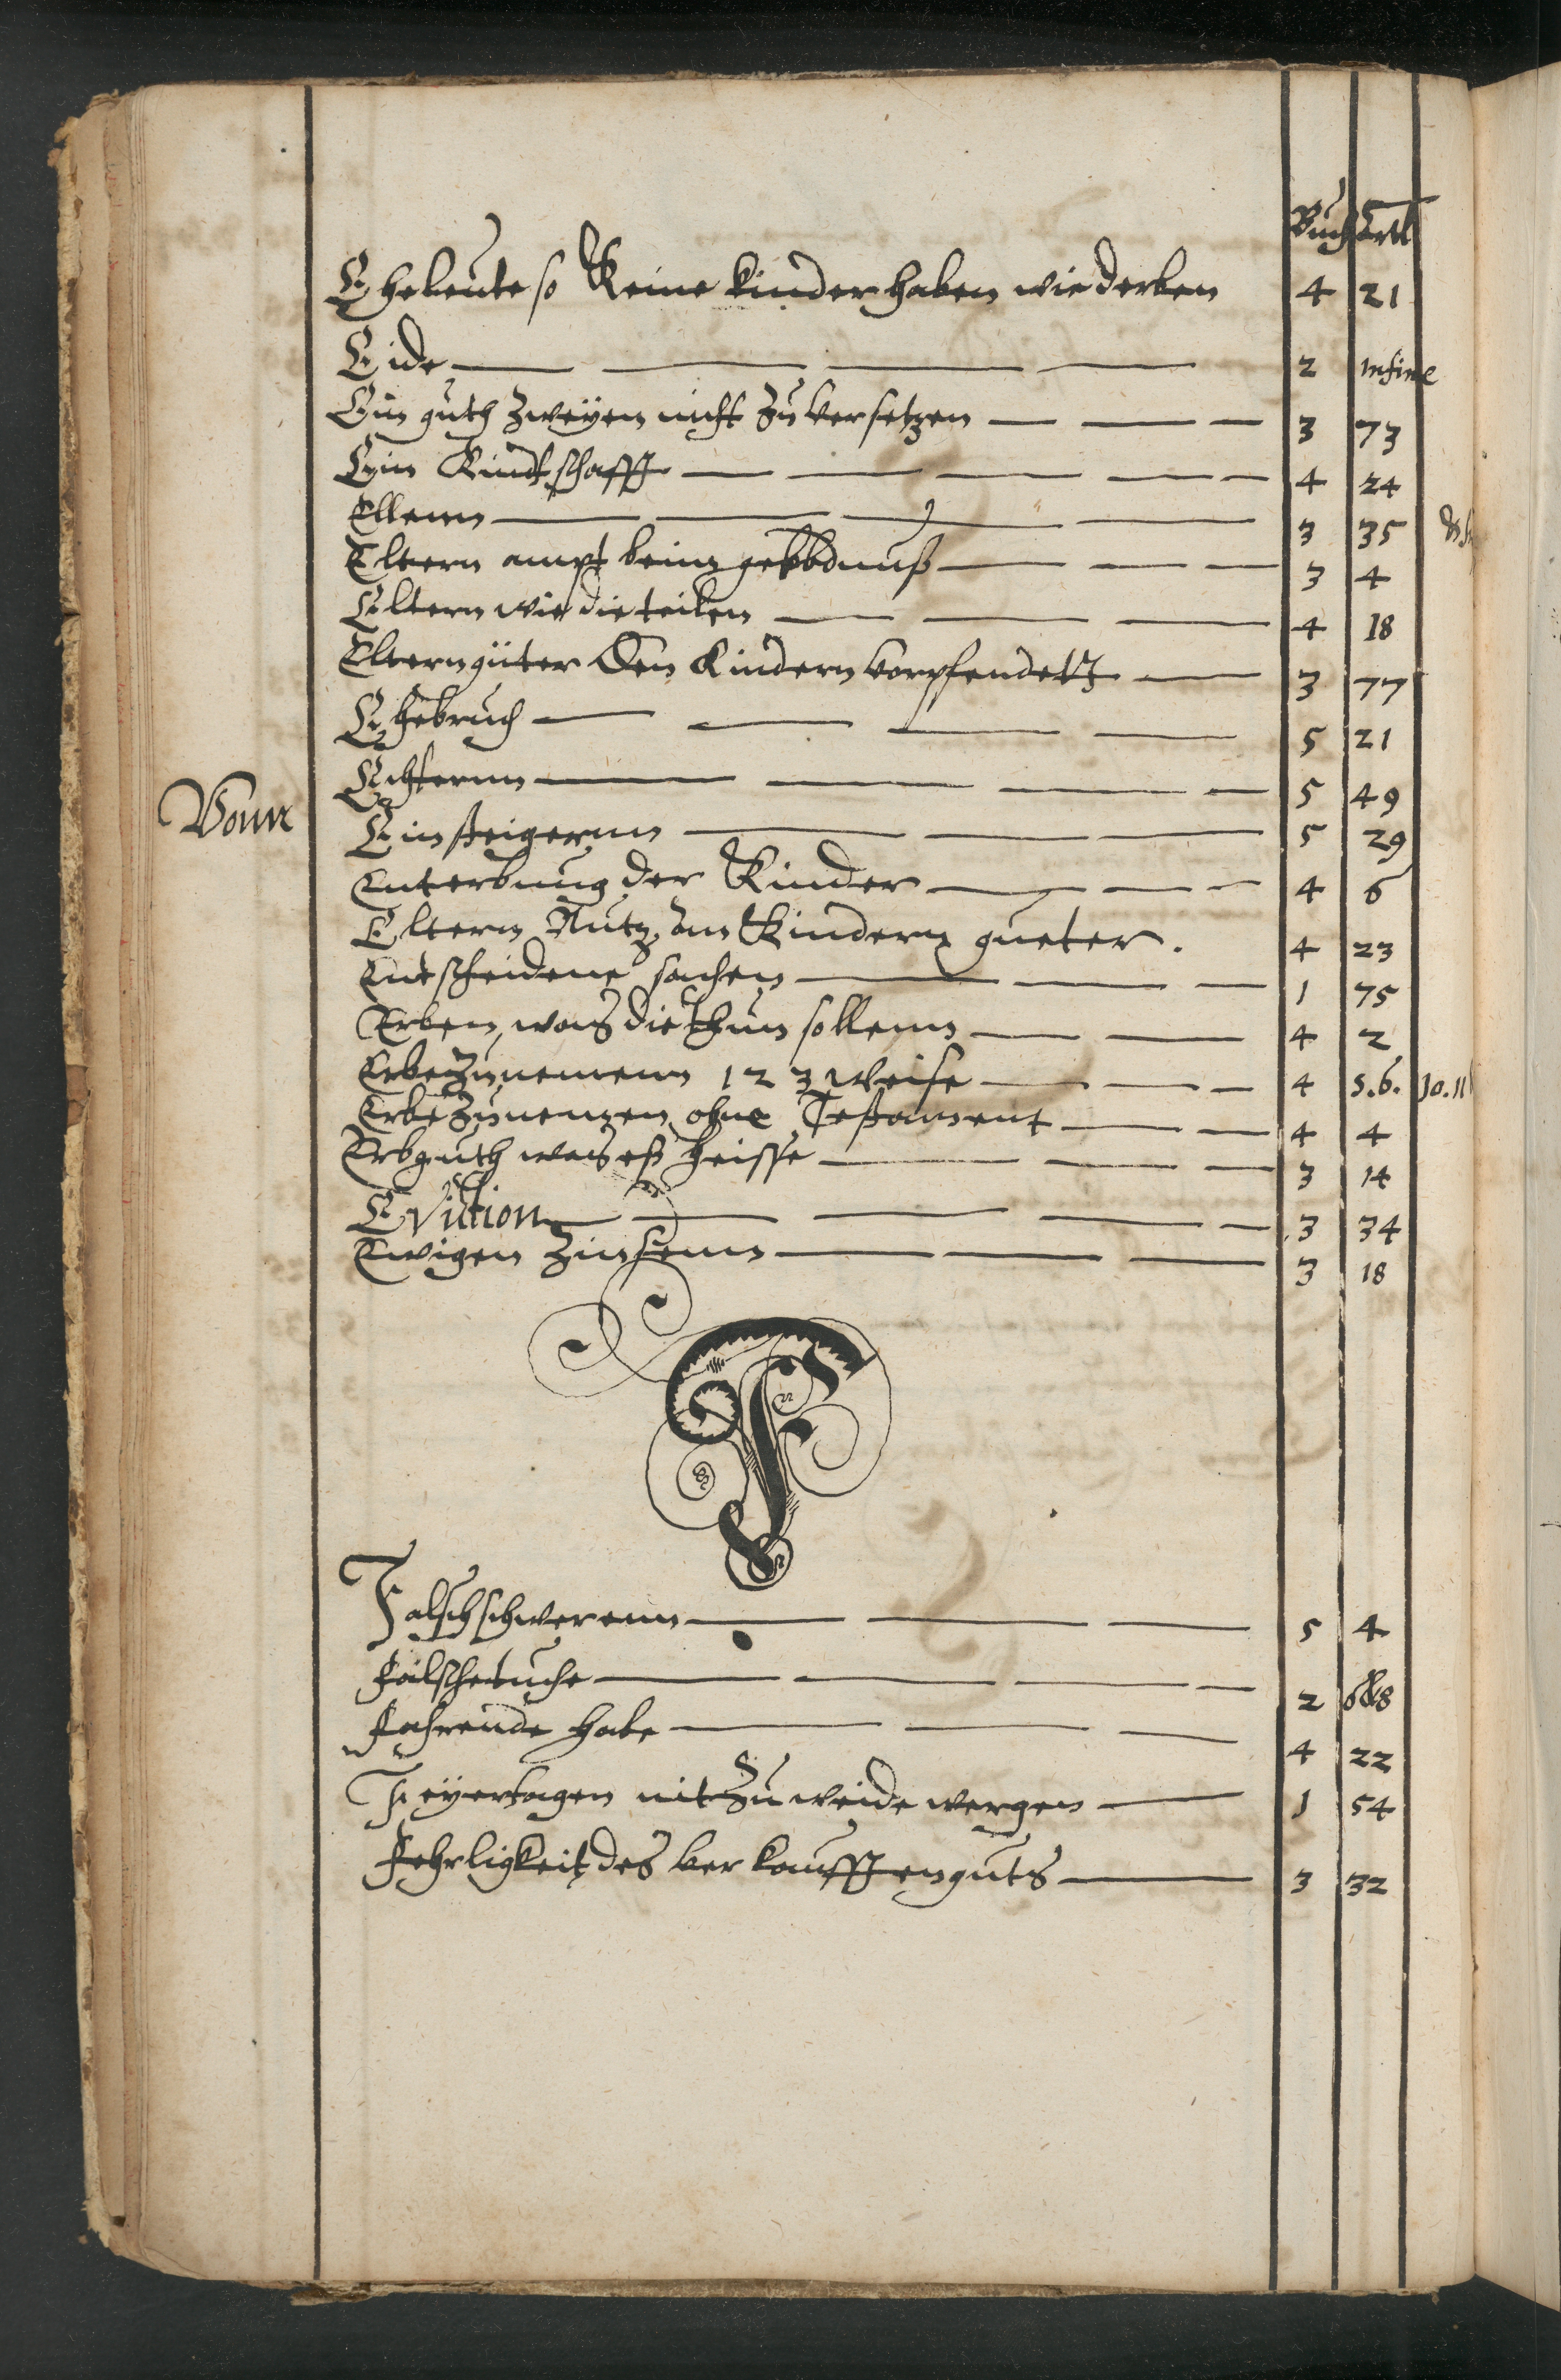 Buch Artl
Eheleute so Keine kinder haben wie d erben 4 21
Eide 2 infine
Ein guth zweÿen nicht zu versetzen 3 73
Ein Kindtschafft 4 24
Ellenn 3 35
Eltern ampt beim gelobdnuß 3 4
Eltern wie die teilen 4 18
Eltern güter Den Kindern vorpfendett 3 77
Ehebruch 5 21
Echterun 5 49
Vonn
Einsteigerun 5 29
Enterbung der Kinder 4 6
Eltern Nutz an Kindern gueter. 4 23
Entscheidene sachen 1 75
Erben, was die thun sollenn 4 2
Erbe zunemenn 1 2 3 weise 4 5.6. 10.11
Erbe zunemen ohne Testament 4 4
Erbguth was eß heisse 3 14
Eviction 3 34
Ewigen Zinsenn 3 18
F
Falsch schwerenn 5 4
Falsche tuche 2 6&8
Fahrende Habe 4 22
Feÿertagen nit zu weide wergen 1 54
Fehrligkeit des verkaufften guts 3 32